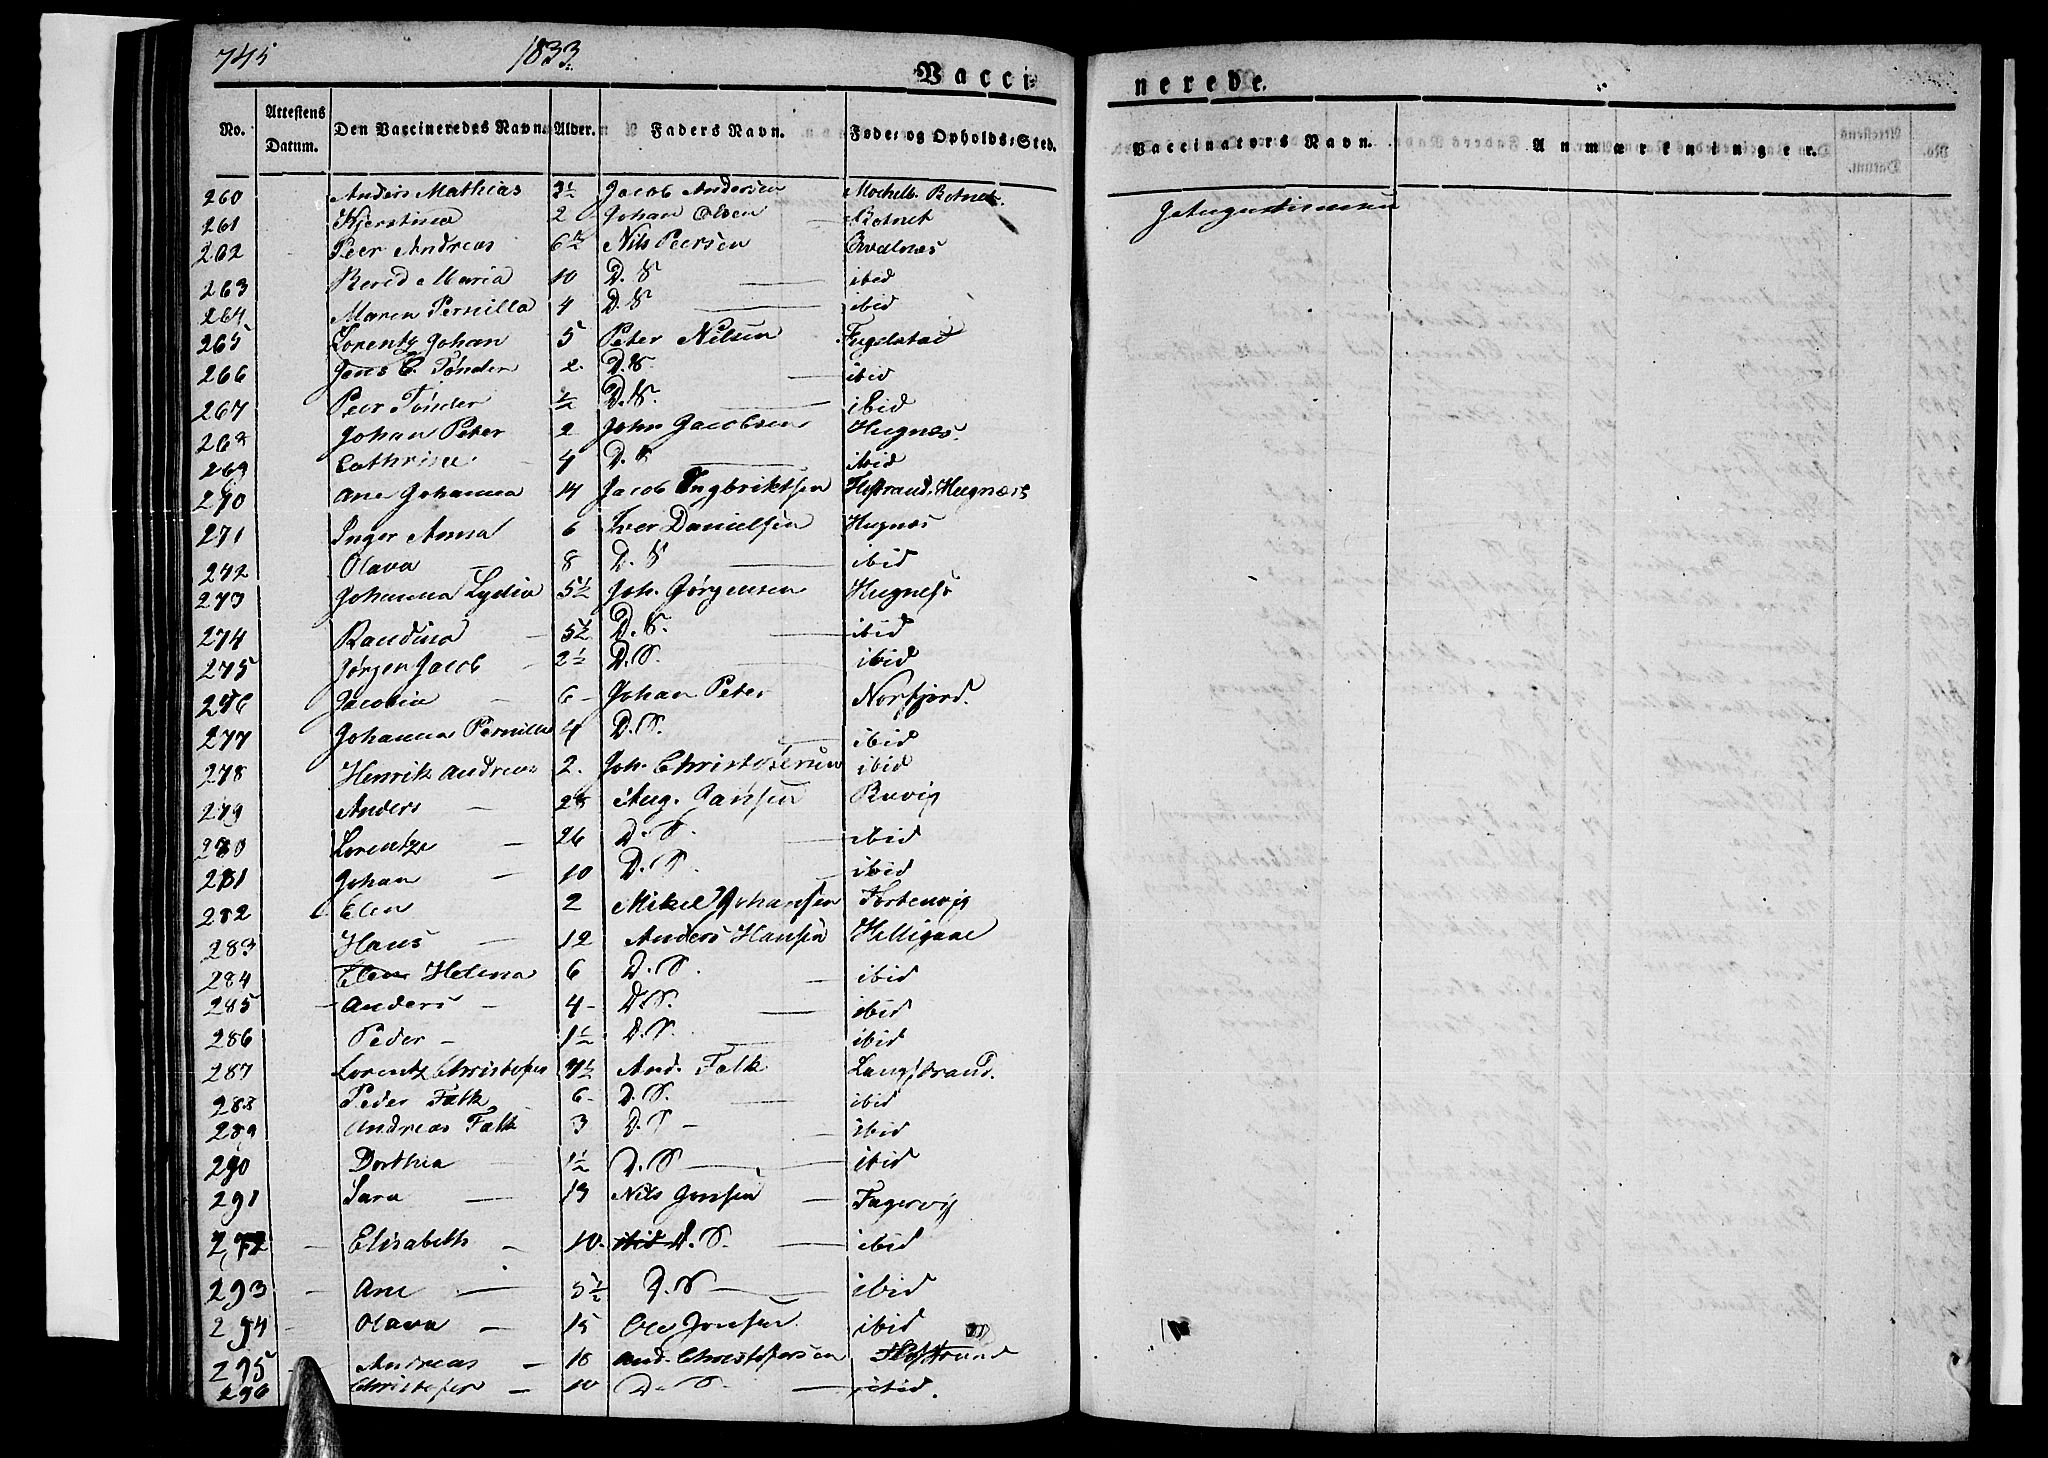 745 1833.
Vacci nerede.
No. Attestens Datum. Den Vaccineredes Navn. Alder. Faders Navn. Føde- og Opholds-Sted. Vaccinators Navn. Anmærkninger.
260 Anders Mathias Jacob Andersen Botnet.
261 Kjerstina 2 Johan Olsen Botnet
262 Peer Andreas 6 1/2 Nils Peersen
263 Bered Maria 10 D. S ibid
264 Maren Pernilla 4 D. S ibid
265 Lorentz Johan 5 Peter Nilsen
266 Jens C. Tønder 2. D. S. ibid
267 Peer Tönder 1/2 D. S. ibid
268 Johan Peter 2 John Jacobsen Hugnes.
269 Cathrina 4 D. S ibid
270 Ane Johanna 14 Jacob Ingbriktsen Hugnæs
271 Inger Anna 6 Iver Danielsen Hugnæs
272 Olava 8 D. S ibid
273 Johanna Lydia 5 1/2 Joh. Jørgensen Hugness
274 Randina 5 1/2 D. S. ibid
275 Jørgen Jacob 2 1/2 D. S. ibid
276 Jacobia 6 Johan Peter Norfjord.
277 Johanna Pernilla 4 D. S. ibid
278 Henrik Andreas 2. Joh. ibid
279 Anders 28 Aug. Jansen
280 Lorentze 26 D. S. ibid
281 Johan 10 D. S. ibid
282 Elen 2 Mikel Johansen
283 Hans 12 Anders Hansen
284 Elen Helena 6 D. S. ibid
285 Anders 4 D. S. ibid
286 Peder 1 1/2 D. S. ibid
287 Lorentz Christofer And. Falk Langstrand.
288 Peder Falk 6 D. S. ibid
289 Andreas Falk 3 D. S ibid
290 Dorthia 1 1/2 D. S ibid
291 Sara 13 Nils Jonsen Fagervig
292 Elisabeth 10. ibid D. S. ibid
293 Ane 5 1/2 D. S ibid
294 Olava 15 Ole Jonsen ibid
295 Andreas 18 And. Christofersen
296 Christofer 10 D. S. ibid.